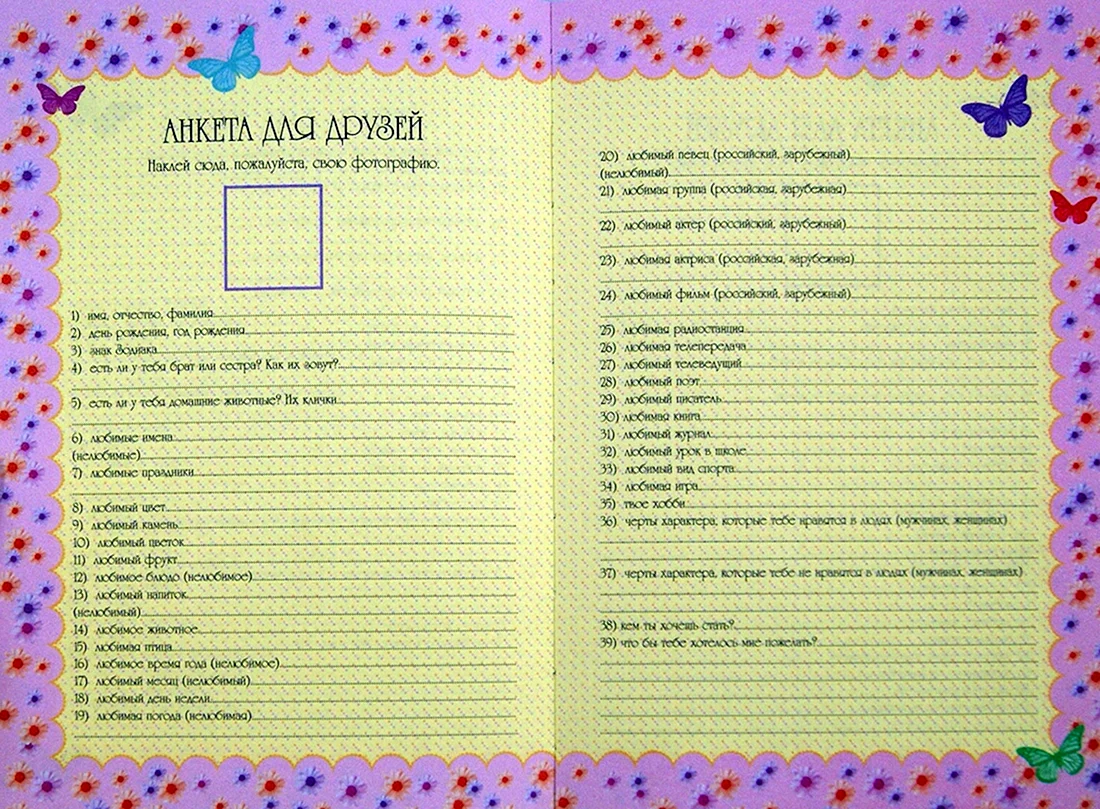 АНКЕТА ДЛЯ ДРУЗЕЙ
Наклей сюда, пожалуйста, свою фотографию.
1) имя, отчество, фамилия
2) день рождения, год рождения
3) знак Зодиака
4) есть ли у тебя брат или сестра? Как их зовут?
5) есть ли у тебя домашние животные? Их клички
6) любимые имена
(нелюбимые)
7) любимые праздники
8) любимый цвет
9) любимый камень
10) любимый цветок
11) любимый фрукт
12) любимое блюдо (нелюбимое)
13) любимый напиток
(нелюбимый)
14) любимое животное
15) любимая птица
16) любимое время года (нелюбимое)
17) любимый месяц (нелюбимый)
18) любимый день недели
19) любимая погода (нелюбимая)
20) любимый певец (российский, зарубежный)
(нелюбимый)
21) любимая группа (российская, зарубежная)
22) любимый актер (российский, зарубежный)
23) любимая актриса (российская, зарубежная)
24) любимый фильм (российский, зарубежный)
25) любимая радиостанция
26) любимая телепередача
27) любимый телеведущий
28) любимый поэт
29) любимый писатель
30) любимая книга
31) любимый журнал
32) любимый урок в школе
33) любимый вид спорта
34) любимая игра
35) твое хобби
36) черты характера, которые тебе нравятся в людях (мужчинах, женщинах)
37) черты характера, которые тебе не нравятся в людях (мужчинах, женщинах)
38) кем ты хочешь стать?
39) что бы тебе хотелось мне пожелать?